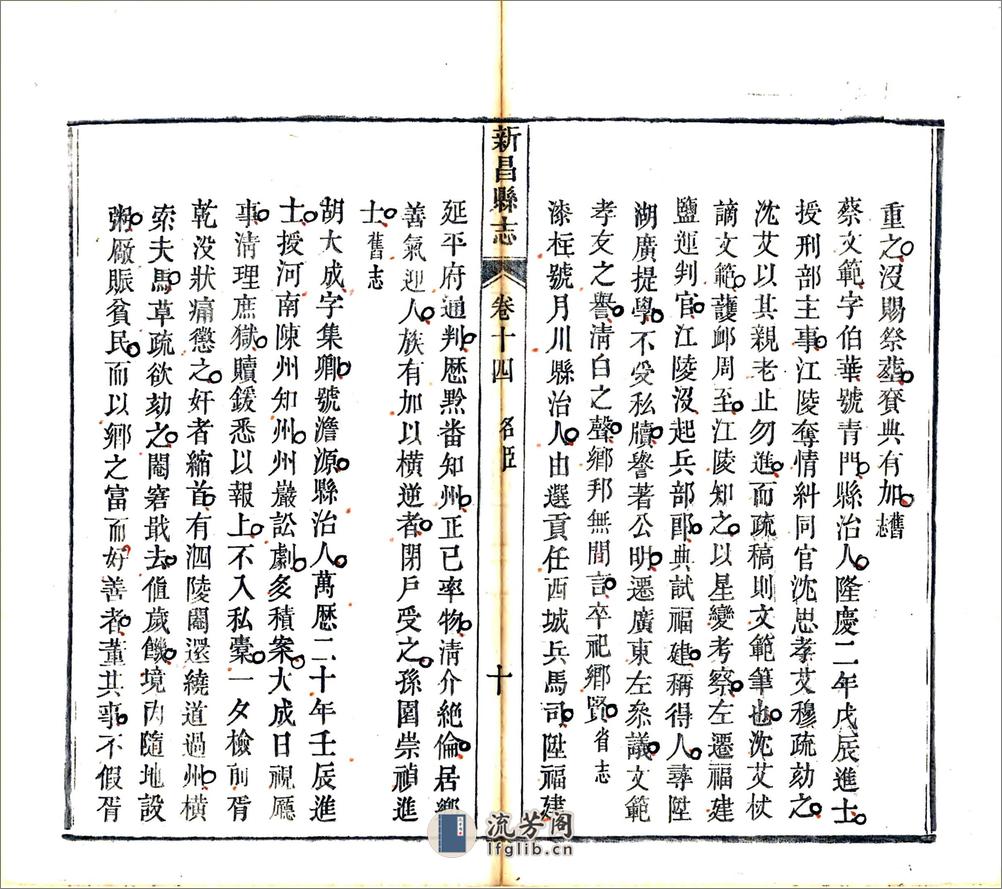 重之沒賜祭塟賚典有加舊志
蔡文範字伯華號青門縣治人隆慶二年戊辰進士
授刑部主事江陵奪情糾同官沈思孝艾穆疏劾之
沈艾以其親老止勿進而疏稿則文範筆也沈艾杖
謫文範護䘏周至江陵知之以星變考察左遷福建
鹽運判官江陵沒起兵部郎典試福建稱得人尋陞
湖廣提學不受私牘譽著公明遷廣東左叅議文範
孝友之譽清白之聲鄉邦無間言卒祀鄉賢省志
漆柱號月川縣治人由選貢任西城兵馬司陞福建
新昌縣志 卷十四 名臣 十
延平府通判歷黔番知州正已率物清介絶倫居鄉
善氣迎人族有加以橫逆者閉戶受之孫園崇禎進
士舊志
胡大成字集卿號澹源縣治人萬歷二十年壬辰進
士授河南陳州知州州巖訟劇多積案大成日視廳
事清理庶獄贖鍰悉以報上不入私橐一夕檢前胥
乾没狀痛懲之奸者縮首有泗陵閹還繞道過州橫
索夫馬草疏欲劾之閹窘戢去値歲饑境內隨地設
粥厰賑貧民而以鄉之富而好善者董其事不假胥
流芳閣
lfglib.cn